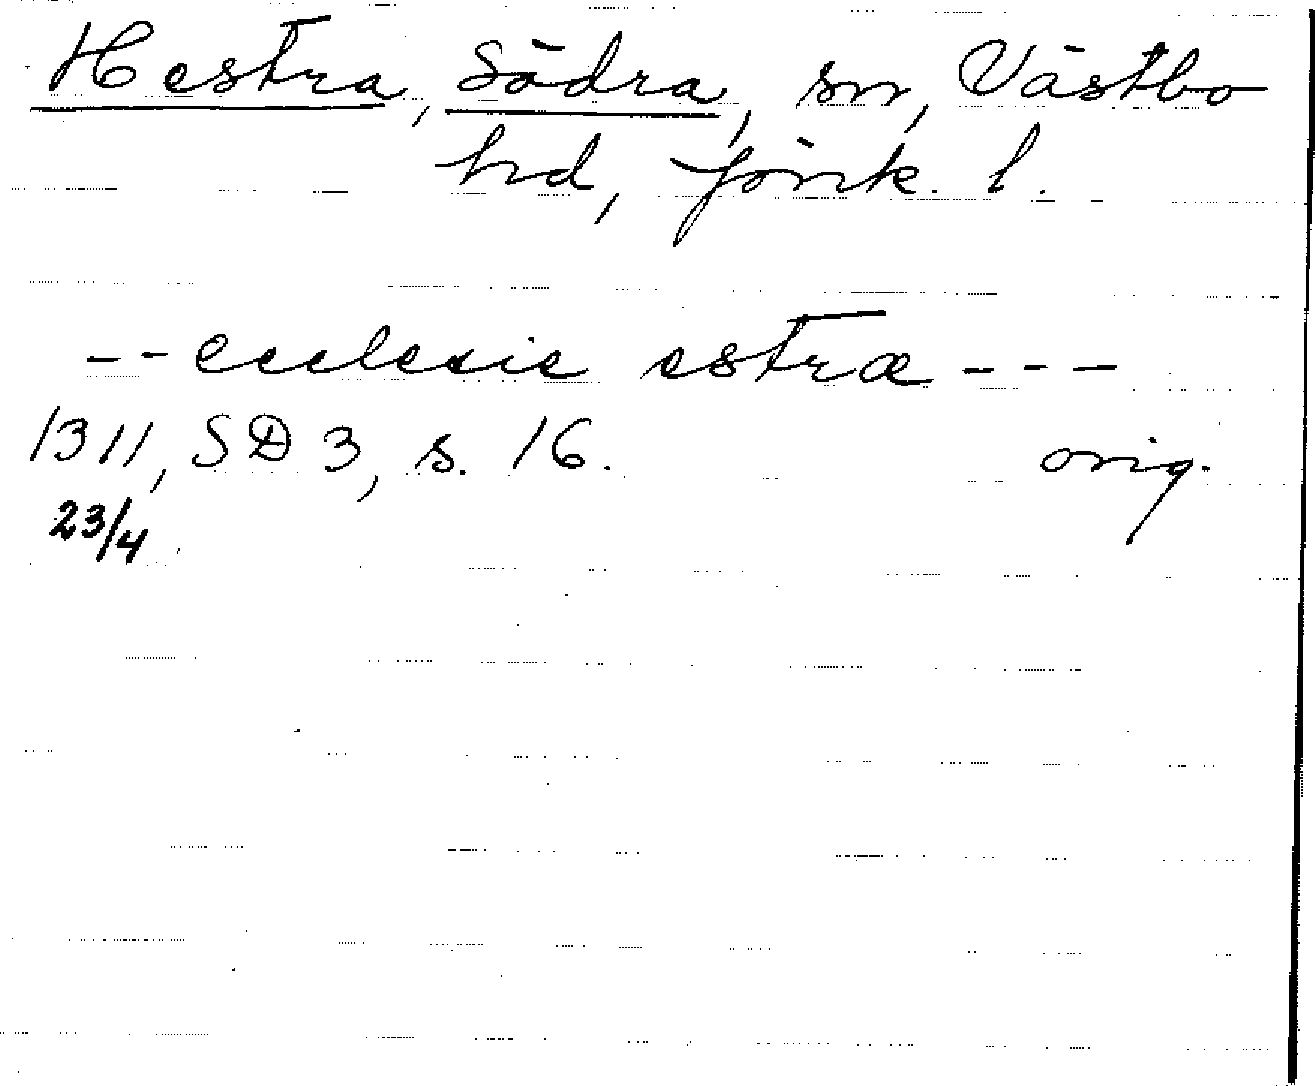 Hestra, Södra, sn, Västbo
hd, Jönk. l.
--ecclesie estræ---
1311, SD 3, s. 16. orig.
23/4